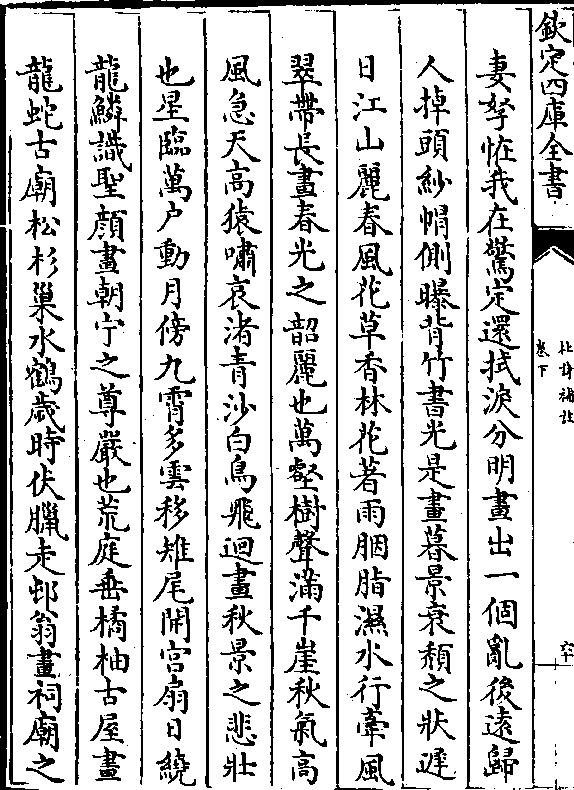 欽定四庫全書
杜詩補註
卷下
妻孥怪我在驚定還拭淚分明畫出一個亂後逺歸
人掉頭紗帽側曝背竹書光是畫暮景衰頹之狀遲
日江山麗春風花草香林花著雨胭脂濕水行牽風
翠帶長畫春光之韶麗也萬壑樹聲滿千崖秋氣高
風急天高猿嘯哀渚青沙白鳥飛迴畫秋景之悲壯
也星臨萬户動月傍九霄多雲移雉尾開宫扇日繞
龍鱗識聖顔畫朝宁之尊嚴也荒庭垂橘柚古屋畫
龍蛇古廟松杉巢水鶴歲時伏臘走邨翁畫祠廟之